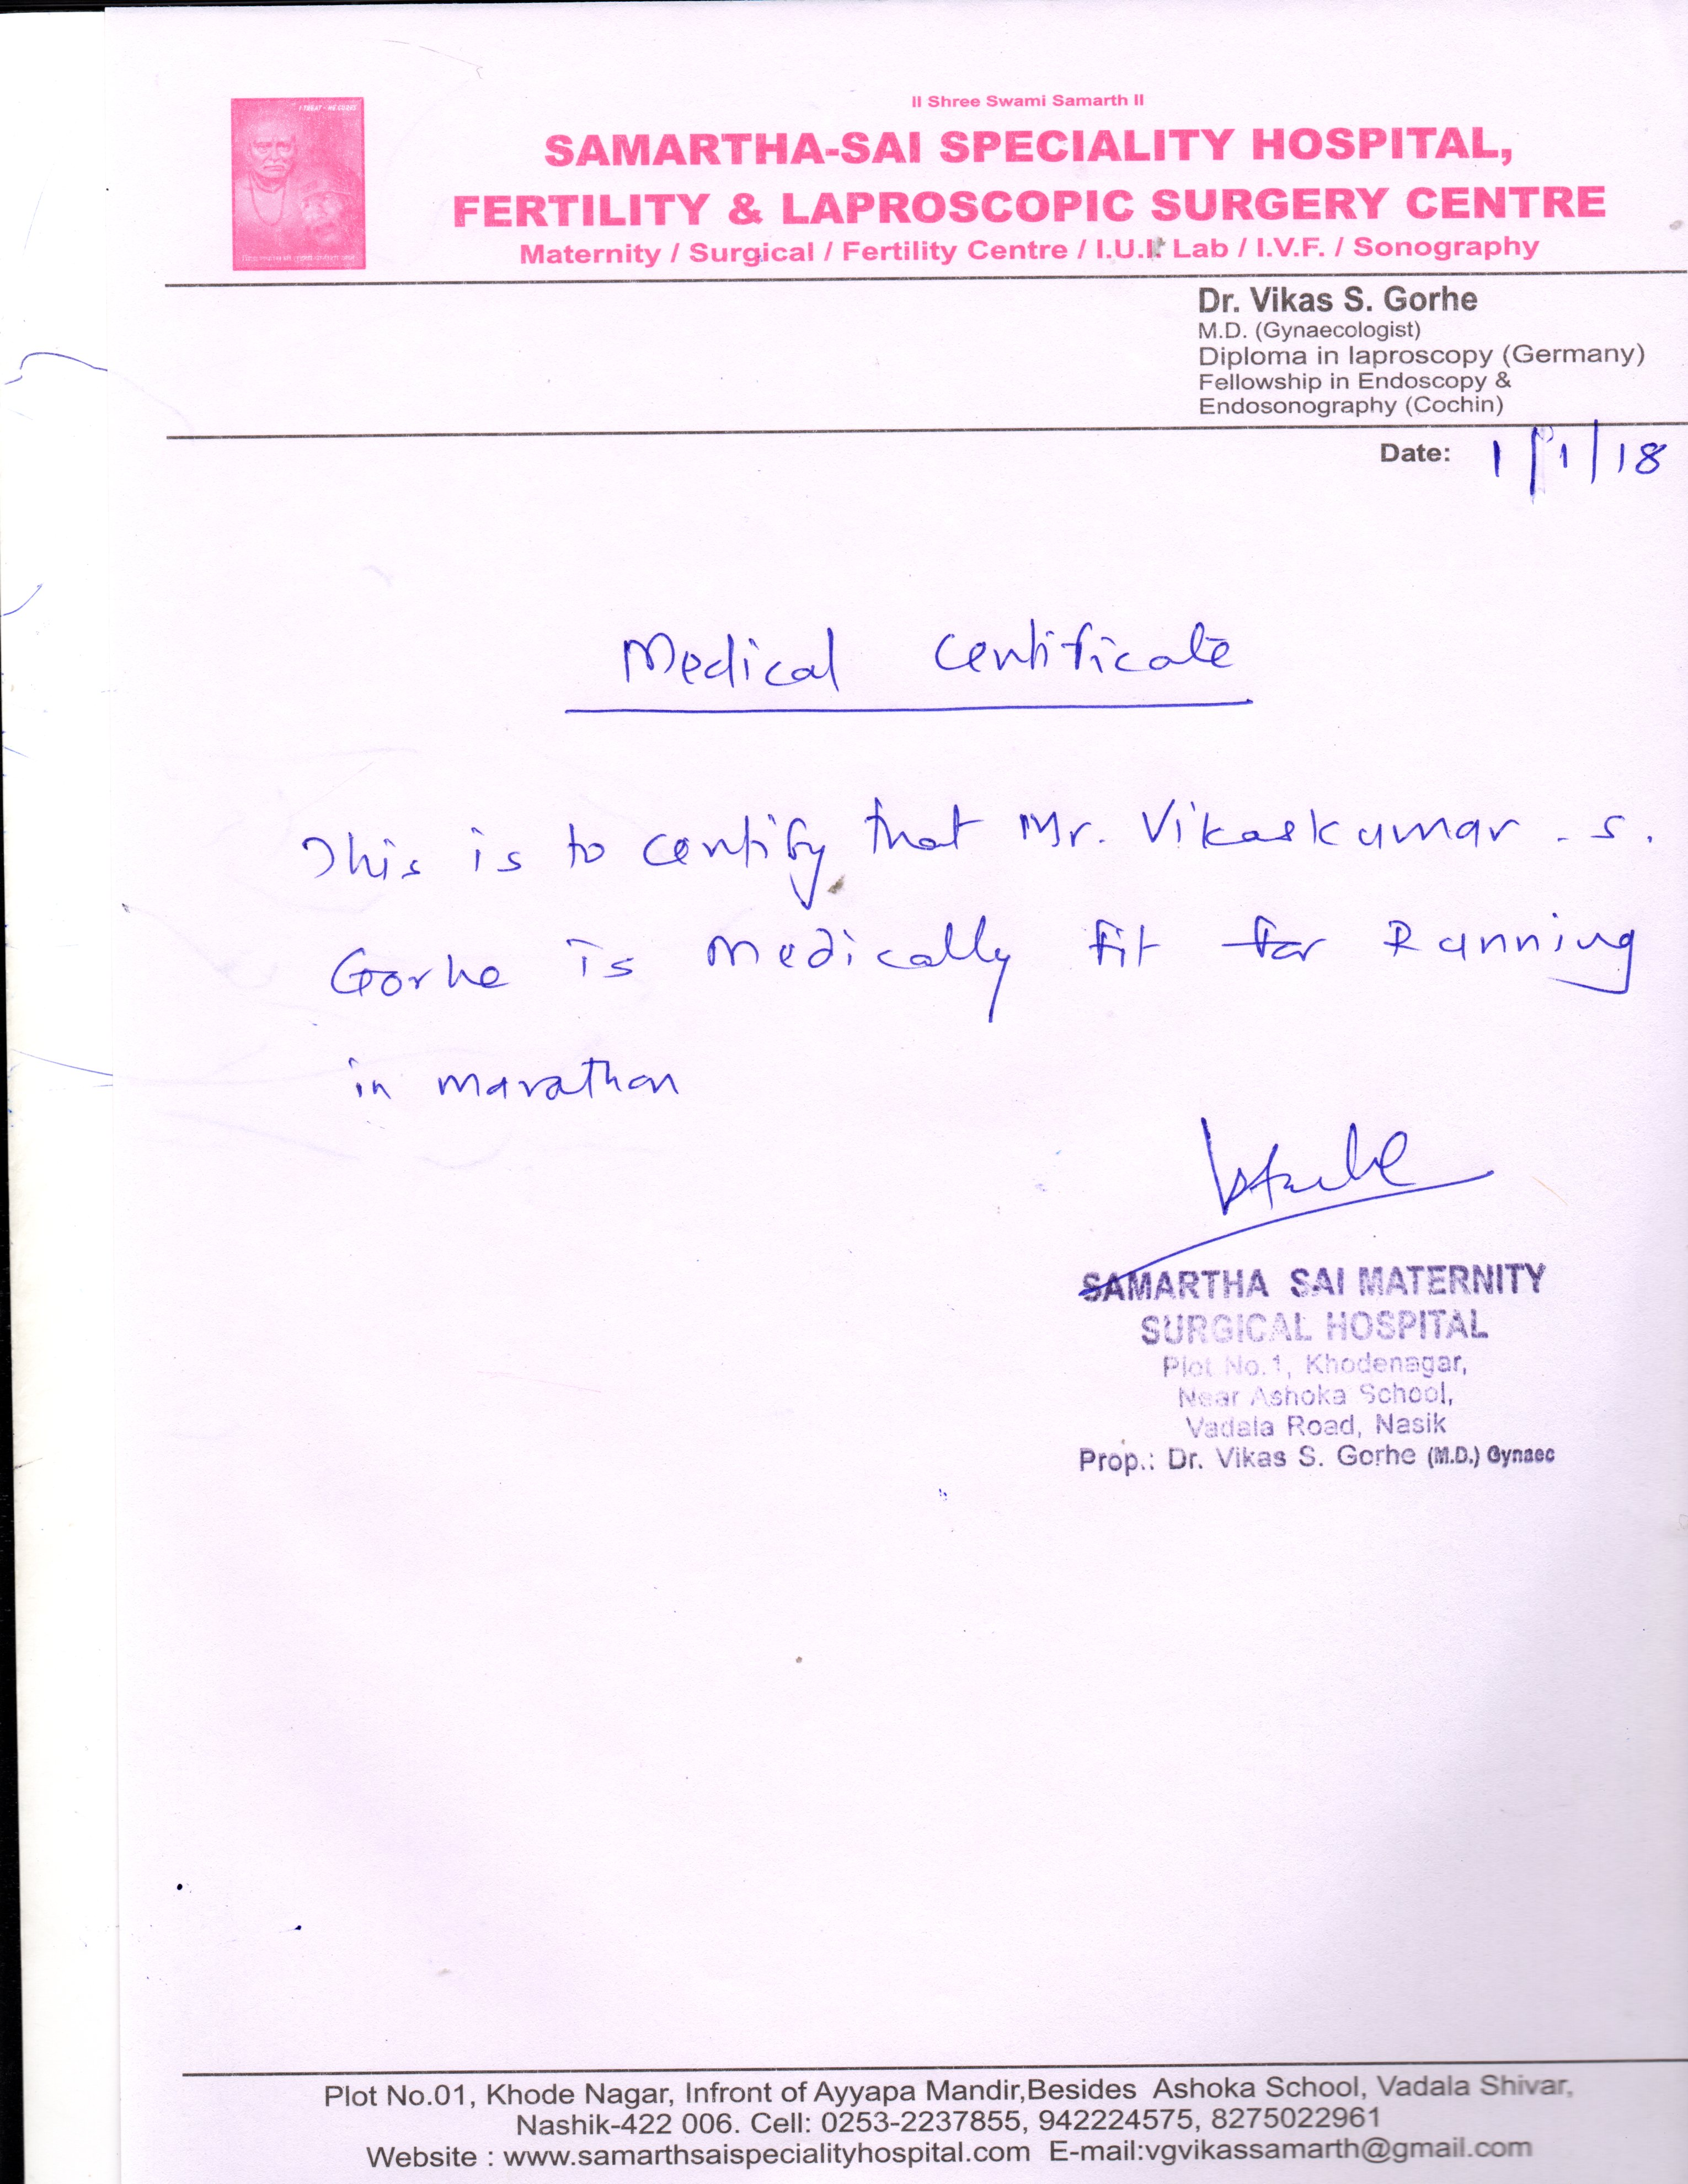 I TREAT - HE CURES
II Shree Swami Samarth II
SAMARTHA-SAI SPECIALITY HOSPITAL,
FERTILITY & LAPROSCOPIC SURGERY CENTRE
Maternity / Surgical / Fertility Centre / I.U.I. Lab / I.V.F. / Sonography
Dr. Vikas S. Gorhe
M.D. (Gynaecologist)
Diploma in laproscopy (Germany)
Fellowship in Endoscopy &
Endosonography (Cochin)
Date: 1/1/18
Medical Certificate
This is to certify that Mr. Vikaskumar . S.
Gorhe is medically fit for Running
in marathon
SAMARTHA SAI MATERNITY
SURGICAL HOSPITAL
Plot No.1, Khodenagar,
Near Ashoka School,
Vadala Road, Nasik
Prop.: Dr. Vikas S. Gorhe (M.D.) Gynaec
Plot No.01, Khode Nagar, Infront of Ayyapa Mandir,Besides Ashoka School, Vadala Shivar,
Nashik-422 006. Cell: 0253-2237855, 942224575, 8275022961
Website : www.samarthsaispecialityhospital.com E-mail:vgvikassamarth@gmail.com